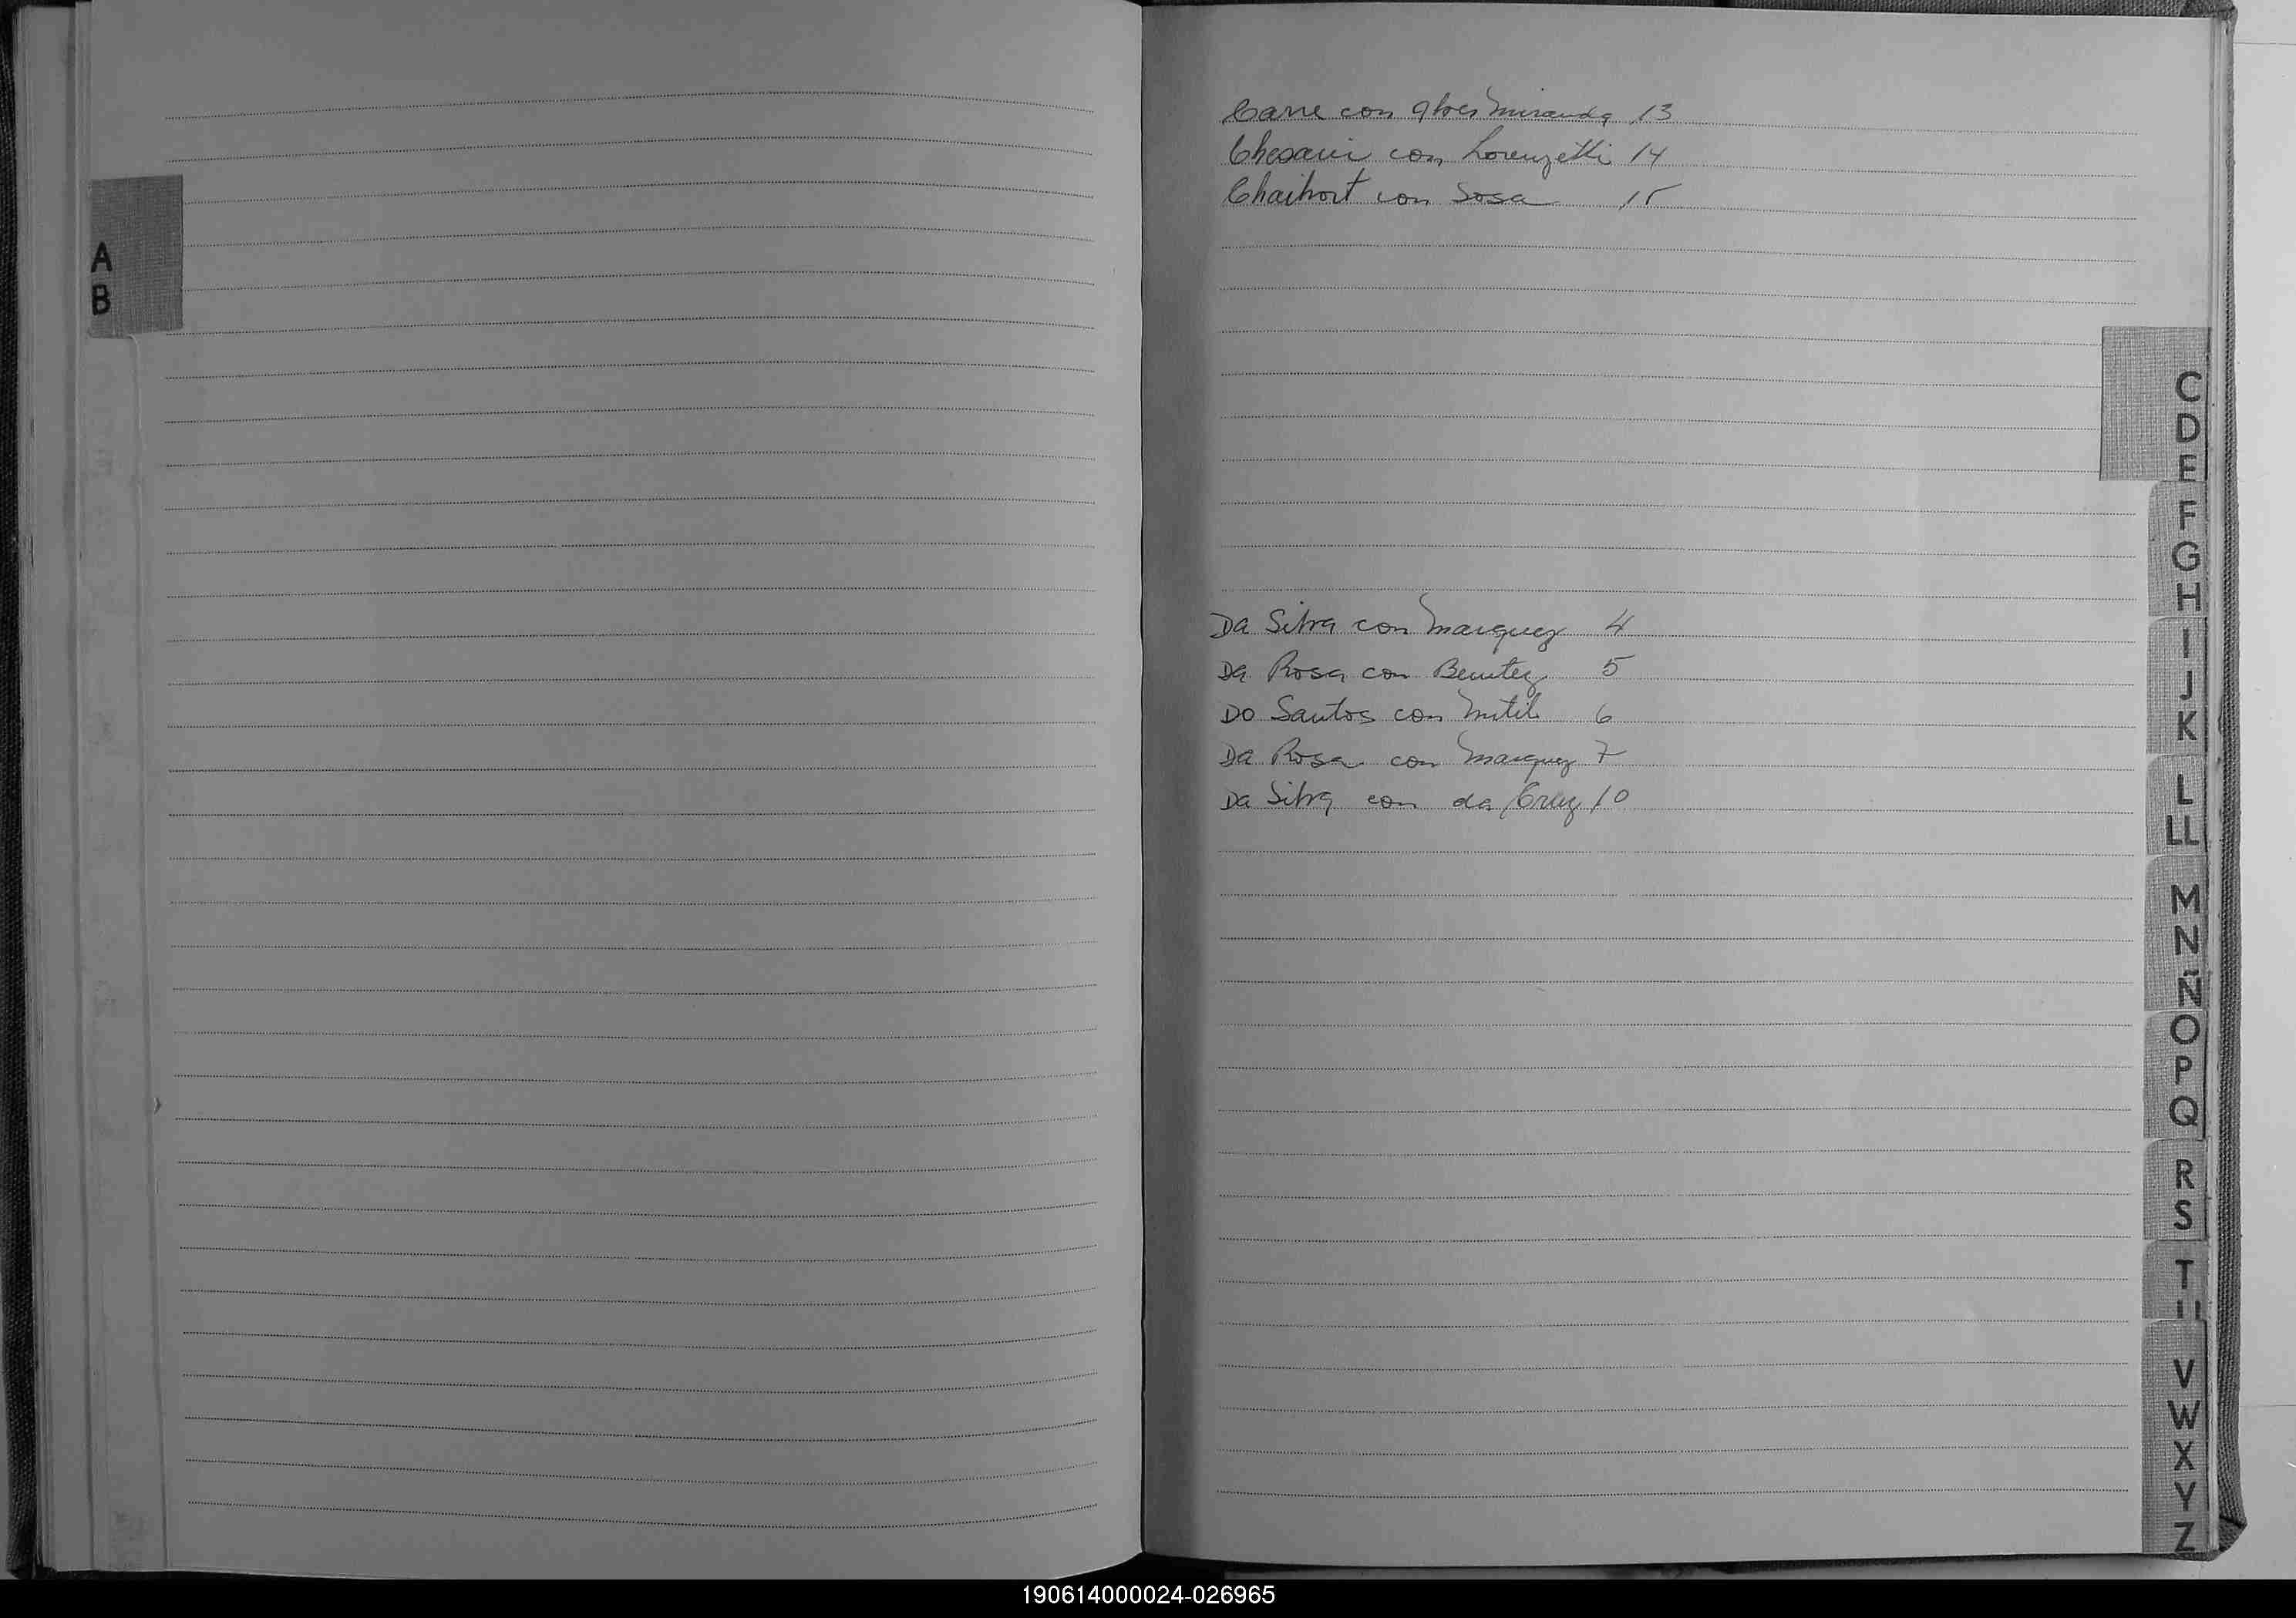 A
B
Carre con Miranda 13
Chesani con Lorenzetti 14
Chaihort con Sosa 15
C
D
E
F
G
H
Da Silva con Marquez 4
Da Rosa con Benitez 5
Do Santos con Mitil 6
Da Rosa con Marquez 7
Da Silva con da Cruz 10
I
J
K
L
LL
M
N
Ñ
O
P
Q
R
S
T
U
V
W
X
Y
Z
190614000024-026965